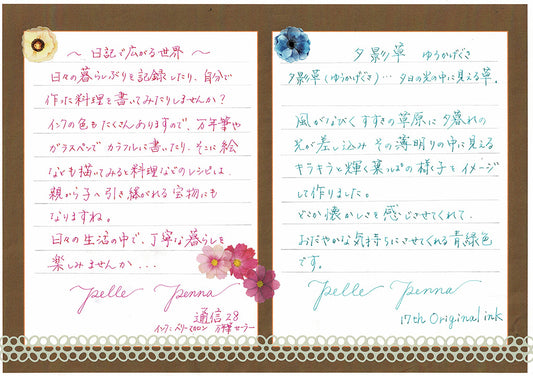 ～ 日記で広がる世界 ～
日々の暮らしぶりを記録したり、自分で
作った料理を書いてみたりしませんか？
インクの色もたくさんありますので、万年筆や
ガラスペンでカラフルに書いたり、そこに絵
なども描いてみると料理などのレシピは、
親から子へ引き継がれる宝物にも
なりますね。
日々の生活の中で、丁寧な暮らしを
楽しみませんか...
Pelle Penna
通信 28
インク：ベリーマカロン 万年筆セーラー
夕影草 ゆうかげぐさ
夕影草（ゆうかげぐさ）… 夕日の光の中に見える草。
風がなびくすすきの草原に夕暮れの
光が差し込み その薄明りの中に見える
キラキラと輝く葉っぱの様子をイメージ
して作りました。
どこか懐かしさを感じさせてくれて、
おだやかな気持ちにさせてくれる青緑色
です。
Pelle Penna
17th Original ink